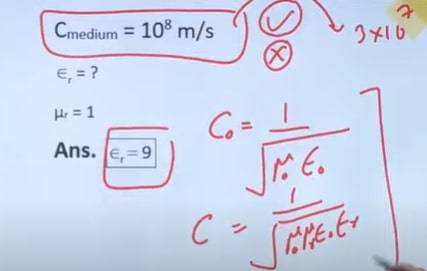 Cmedium = 10⁸ m/s
3×10⁷
∈r = ?
μr = 1
Ans. ∈r = 9
C₀ = 1/√(μ₀ ϵ₀)
C = 1/√(μ₀ μr ϵ₀ ϵr)